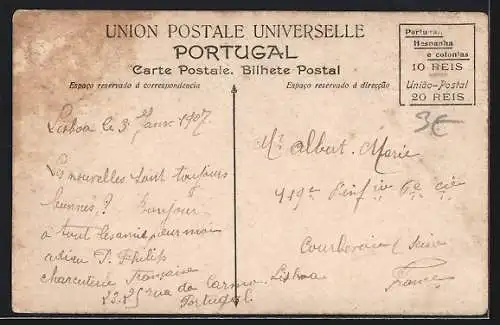 UNION POSTALE UNIVERSELLE
PORTUGAL
Carte Postale. Bilhete Postal
Espaço reservado á correspondencia
Espaço reservado á direcção
Portugal
Hespanha
e colonias
10 REIS
União-Postal
20 REIS
3€
Lisboa le 3 Janv 1907.
Les nouvelles sont toujours
bonnes? Bonjour
a tout les amis pour moi
adieu P. Philip
charcuterie française
23.25 rua do Carmo. Lisboa
Portugal.
Mr Albert Marie
119e
Courbevoie (Seine
France